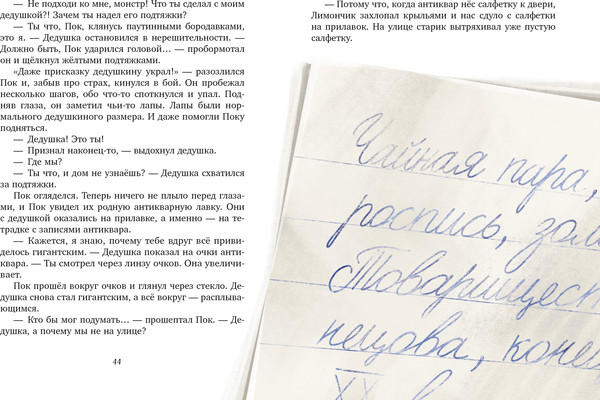 — Не подходи ко мне, монстр! Что ты сделал с моим
дедушкой?! Зачем ты надел его подтяжки?
— Ты что, Пок, клянусь паутинными бородавками,
это я. — Дедушка остановился в нерешительности. —
Должно быть, Пок ударился головой… — пробормотал
он и щёлкнул жёлтыми подтяжками.
«Даже присказку дедушкину украл!» — разозлился
Пок и, забыв про страх, кинулся в бой. Он пробежал
несколько шагов, обо что-то споткнулся и упал. Под-
няв глаза, он заметил чьи-то лапы. Лапы были нор-
мального дедушкиного размера. И даже помогли Поку
подняться.
— Дедушка! Это ты!
— Признал наконец-то, — выдохнул дедушка.
— Где мы?
— Ты что, и дом не узнаёшь? — Дедушка схватился
за подтяжки.
Пок огляделся. Теперь ничего не плыло перед глаза-
ми, и Пок увидел их родную антикварную лавку. Они
с дедушкой оказались на прилавке, а именно — на те-
традке с записями антиквара.
— Кажется, я знаю, почему тебе вдруг всё приви-
делось гигантским. — Дедушка показал на очки анти-
квара. — Ты смотрел через линзу очков. Она увеличи-
вает.
Пок прошёл вокруг очков и глянул через стекло. Де-
душка снова стал гигантским, а всё вокруг — расплыва-
ющимся.
— Кто бы мог подумать… — прошептал Пок. — Де-
душка, а почему мы не на улице?
44
— Потому что, когда антиквар нёс салфетку к двери,
Лимончик захлопал крыльями и нас сдуло с салфетки
на прилавок. На улице старик вытряхивал уже пустую
салфетку.
Чайная пара,
роспись, зол
Товарищест
нецова, конец
XX в